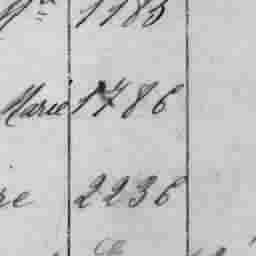 1185
Marie 1786
re 2236